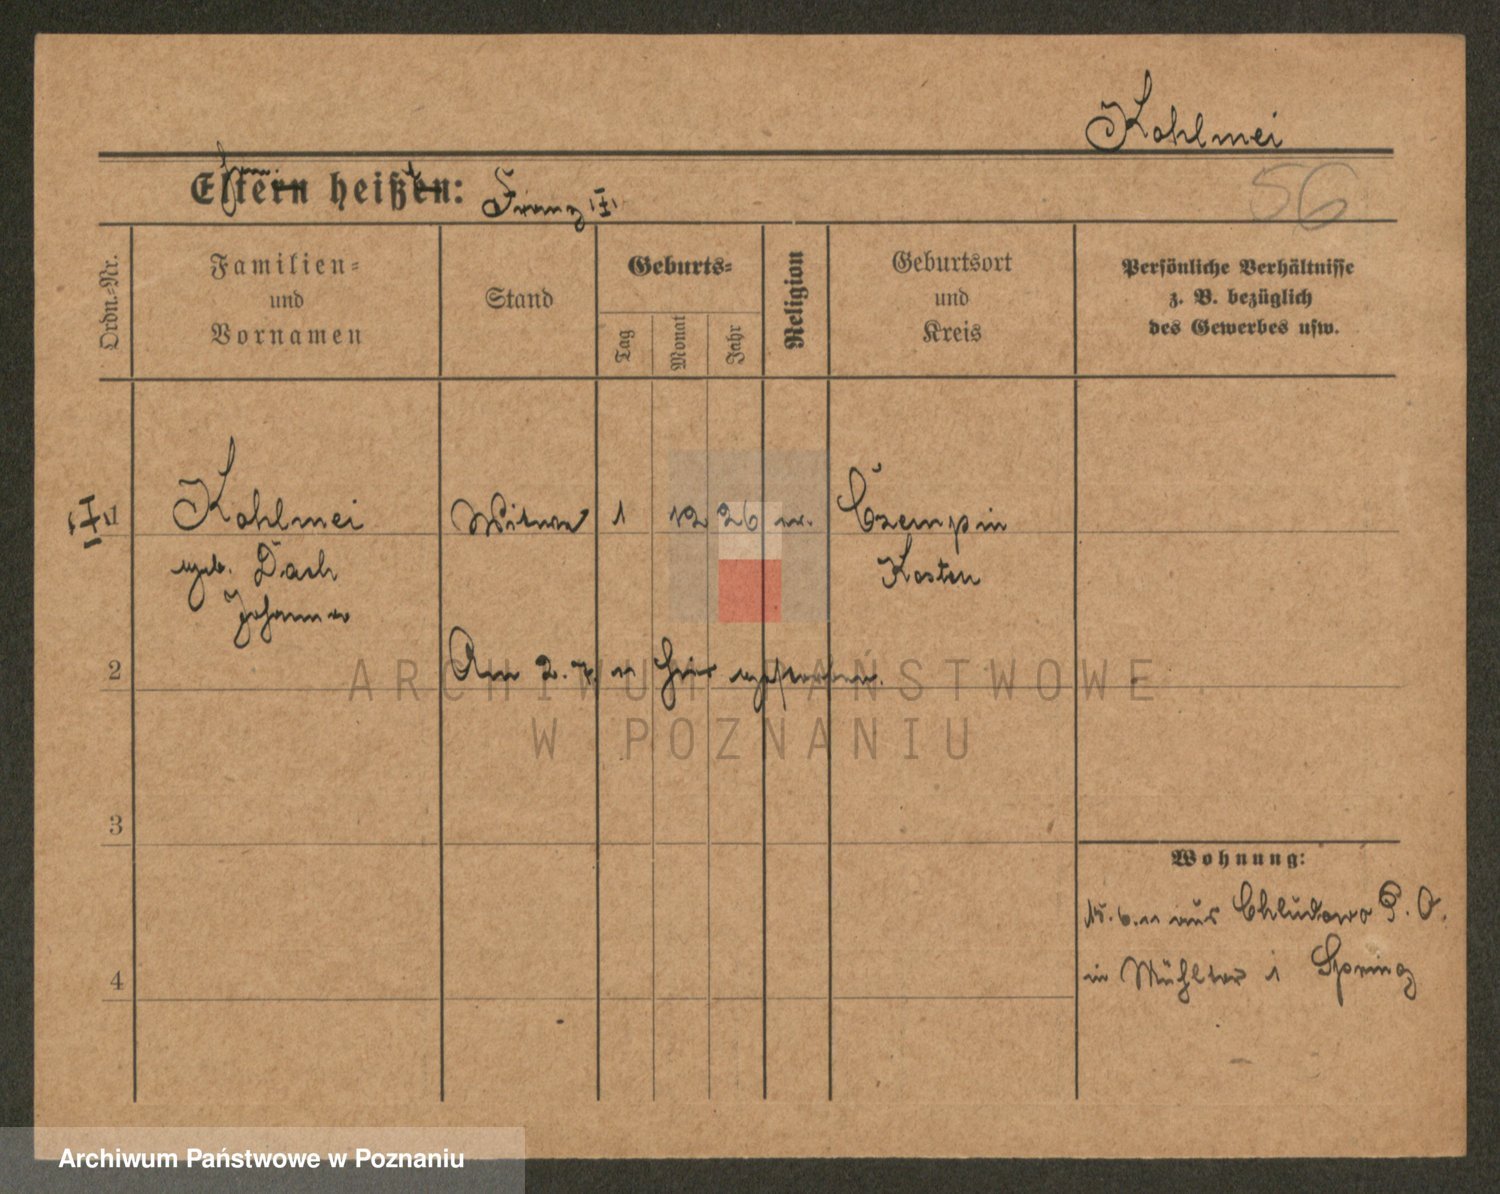 Kohlmei
Eltern heißen: Franz
56
Ordn.-Nr.
Familien-
und
Vornamen
Stand
Geburts-
Tag
Monat
Jahr
Religion
Geburtsort
und
Kreis
Persönliche Verhältnisse
z. B. bezüglich
des Gewerbes usw.
1 Kohlmei Witwe 1 12 26 Czempin
geb. Dach Kosten
Johanna
2 Am 2. 7. 11 hier gestorben.
3
4
Wohnung:
15. 6. 11 aus Chludowo P. O.
in Mühltor 1 Spring
ARCHIWUM PAŃSTWOWE
W POZNANIU
Archiwum Państwowe w Poznaniu